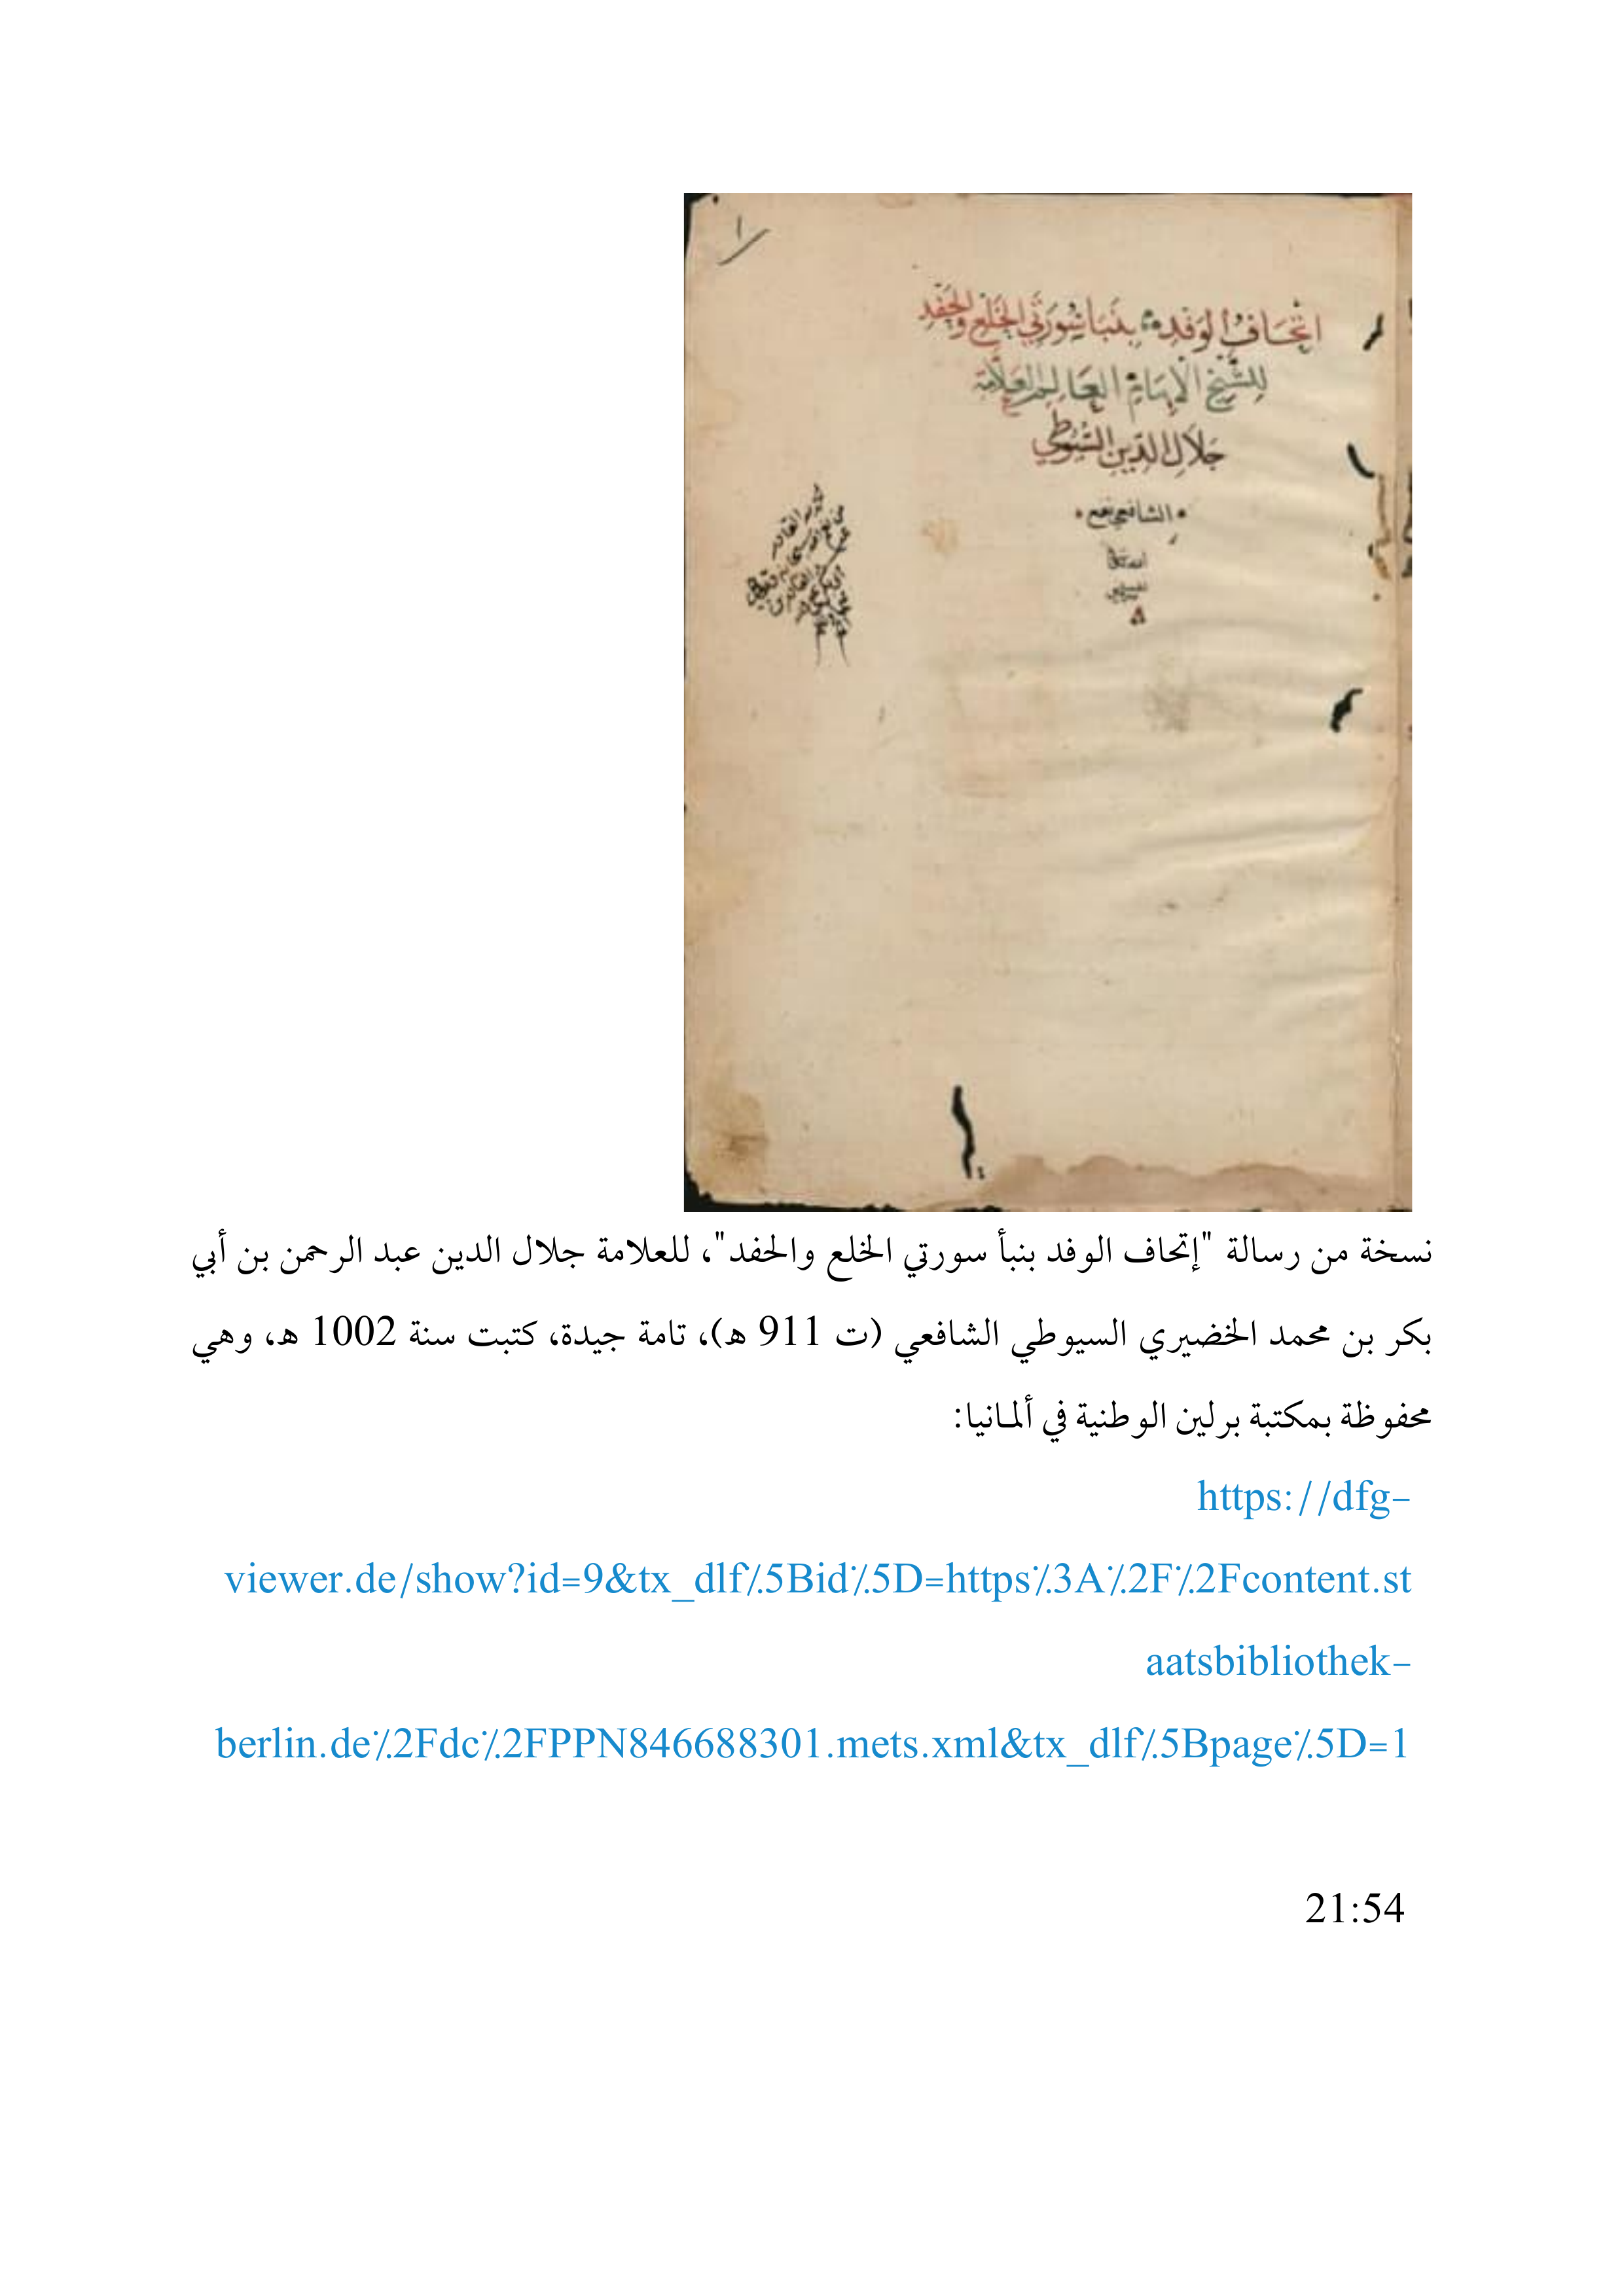 ١
اتحاف الوفد بنبا سورتي الخلع والحفد
للشيخ الامام العالم العلامة
جلال الدين السيوطي
الشافعي نفع
الله تعالى
نسخة من رسالة "إتحاف الوفد بنبأ سورتي الخلع والحفد"، للعلامة جلال الدين عبد الرحمن بن أبي
بكر بن محمد الخضيري السيوطي الشافعي (ت 911 هـ)، تامة جيدة، كتبت سنة 1002 هـ، وهي
محفوظة بمكتبة برلين الوطنية في ألمانيا:
https://dfg-
viewer.de/show?id=9&tx_dlf%5Bid%5D=https%3A%2F%2Fcontent.st
aatsbibliothek-
berlin.de%2Fdc%2FPPN846688301.mets.xml&tx_dlf%5Bpage%5D=1
21:54